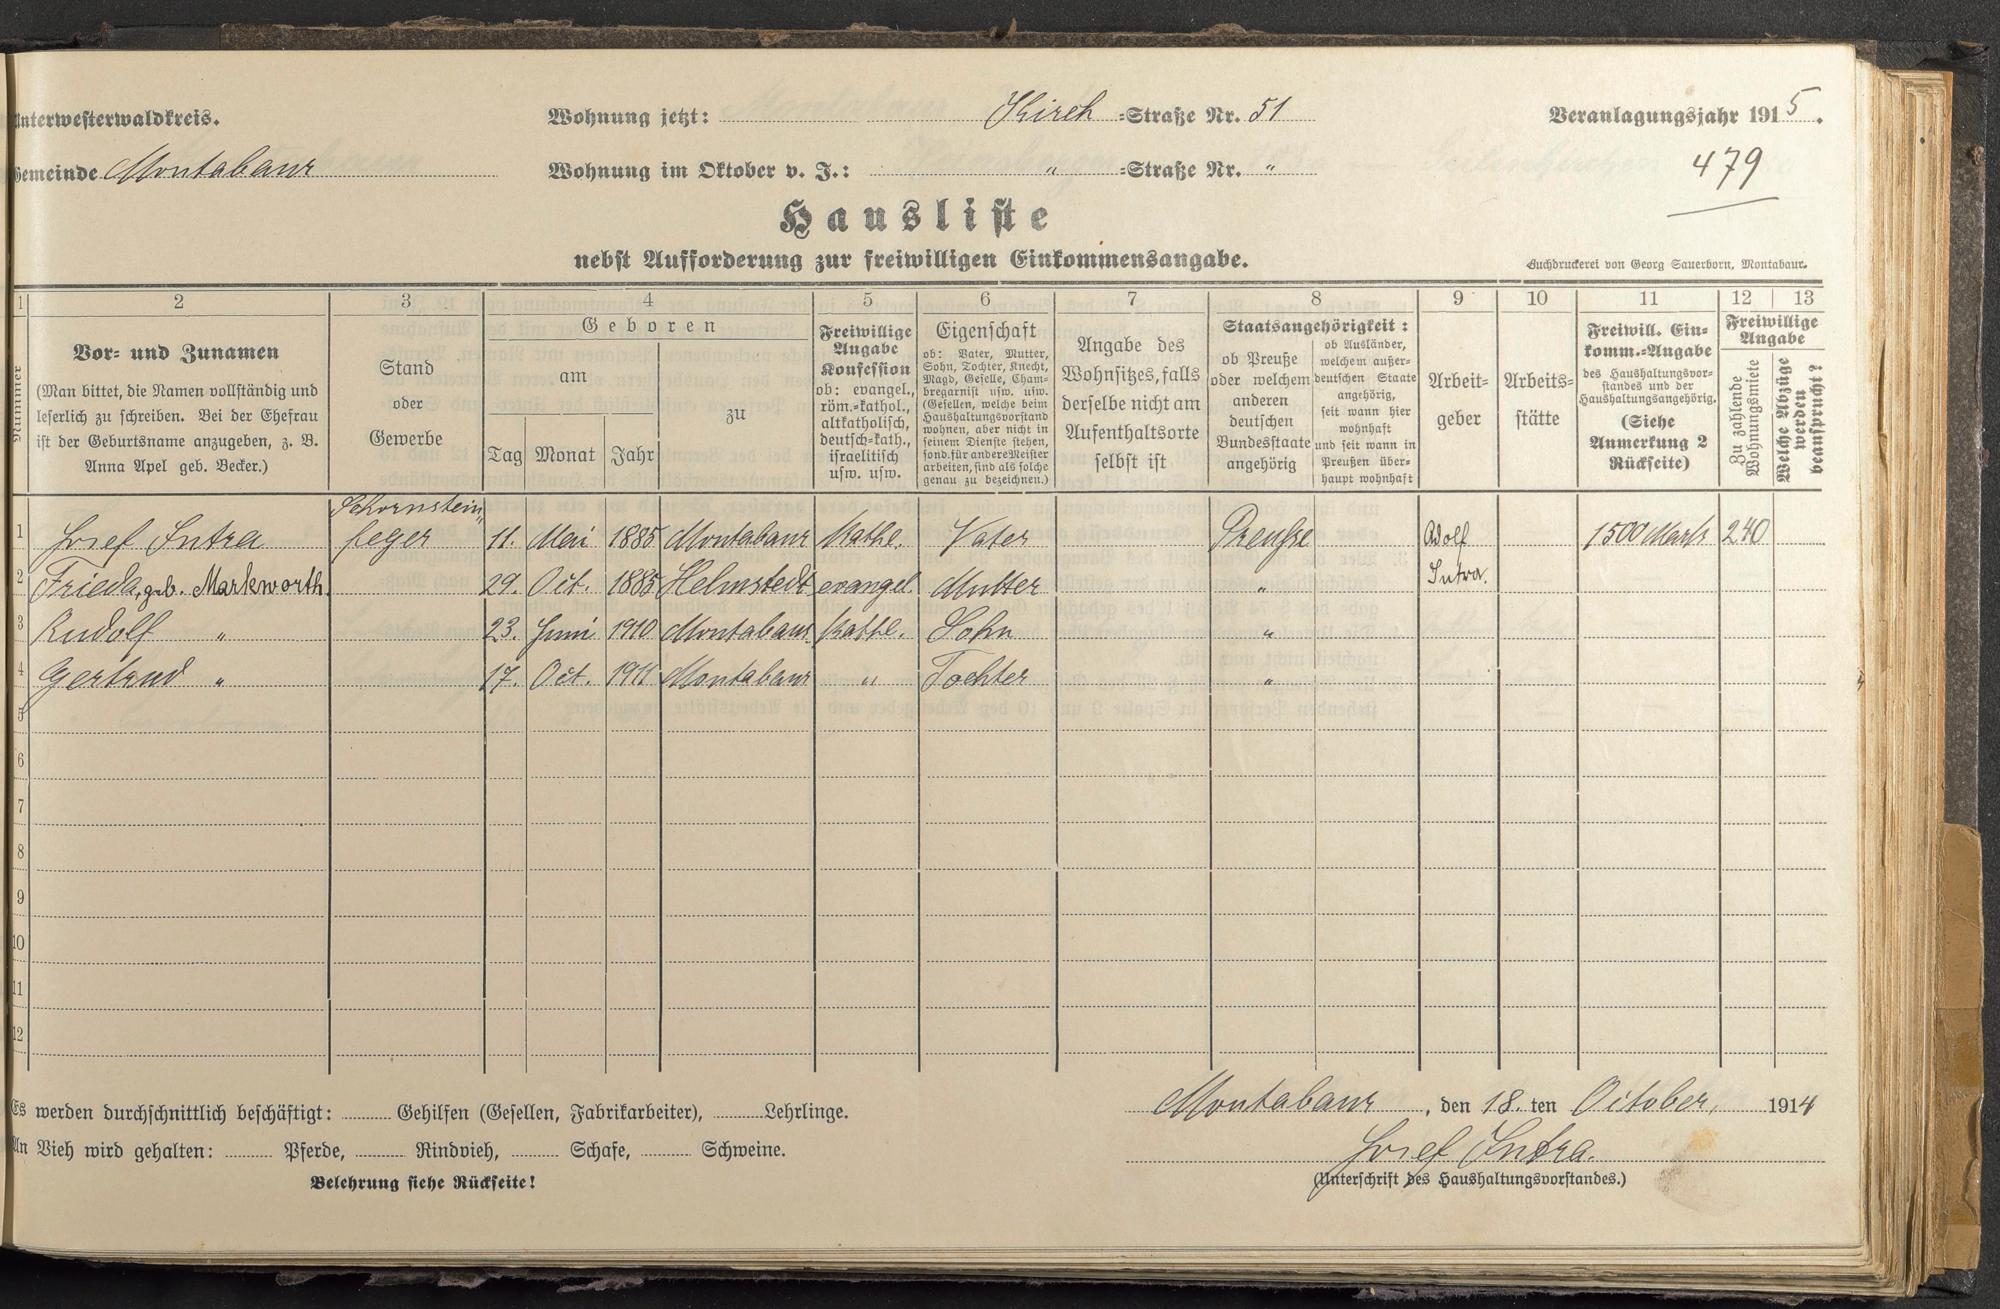 Unterwesterwaldkreis.
Wohnung jetzt: Kirch =Straße Nr. 51
Veranlagungsjahr 1915.
Gemeinde Montabaur
Wohnung im Oktober v. J.: " =Straße Nr. "
479
Hausliste
nebst Aufforderung zur freiwilligen Einkommensangabe.
Buchdruckerei von Georg Sauerborn, Montabaur.
1 2 3 4 5 6 7 8 9 10 11 12 13
Nummer
Vor- und Zunamen
(Man bittet, die Namen vollständig und
leserlich zu schreiben. Bei der Ehefrau
ist der Geburtsname anzugeben, z. B.
Anna Apel geb. Becker.)
Stand
oder
Gewerbe
Geboren
am
Tag Monat Jahr
zu
Freiwillige
Angabe
Konfession
ob: evangel.,
röm.-kathol.,
altkatholisch,
deutsch-kath.,
israelitisch
usw. usw.
Eigenschaft
ob: Vater, Mutter,
Sohn, Tochter, Knecht,
Magd, Geselle, Cham-
bregarnist usw. usw.
(Gesellen, welche beim
Haushaltungsvorstand
wohnen, aber nicht in
seinem Dienste stehen,
sond. für andere Meister
arbeiten, sind als solche
genau zu bezeichnen.)
Angabe des
Wohnsitzes, falls
derselbe nicht am
Aufenthaltsorte
selbst ist
Staatsangehörigkeit:
ob Preuße
oder welchem
anderen
deutschen
Bundesstaate
angehörig
ob Ausländer,
welchem außer-
deutschen Staate
angehörig,
seit wann hier
wohnhaft
und seit wann in
Preußen über-
haupt wohnhaft
Arbeit-
geber
Arbeits-
stätte
Freiwill. Ein-
komm.-Angabe
des Haushaltungsvor-
standes und der
Haushaltungsangehörig.
(Siehe
Anmerkung 2
Rückseite)
Freiwillige
Angabe
Zu zahlende
Wohnungsmiete
Welche Abzüge
werden
beansprucht?
Schornstein"
1 Josef Intra feger 11. Mai 1885 Montabaur Kathl. Vater Preuße Adolf 1500 Mark 240
Intra.
2 Frieda, geb. Markworth. 29. Oct. 1885 Helmstedt evangel. Mutter "
3 Rudolf " 23. Juni 1910 Montabaur Kathl. Sohn "
4 Gertrud " 17. Oct. 1911 Montabaur " Tochter "
5
6
7
8
9
10
11
12
Es werden durchschnittlich beschäftigt: Gehilfen (Gesellen, Fabrikarbeiter), Lehrlinge.
Montabaur, den 18. ten October, 1914
An Vieh wird gehalten: Pferde, Rindvieh, Schafe, Schweine.
Josef Intra.
Belehrung siehe Rückseite!
(Unterschrift des Haushaltungsvorstandes.)